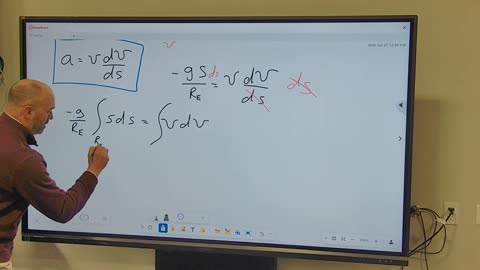 v
a = v dv/ds
-g s ds / R_E = v dv/ds ds
-g/R_E ∫_R s ds = ∫ v dv